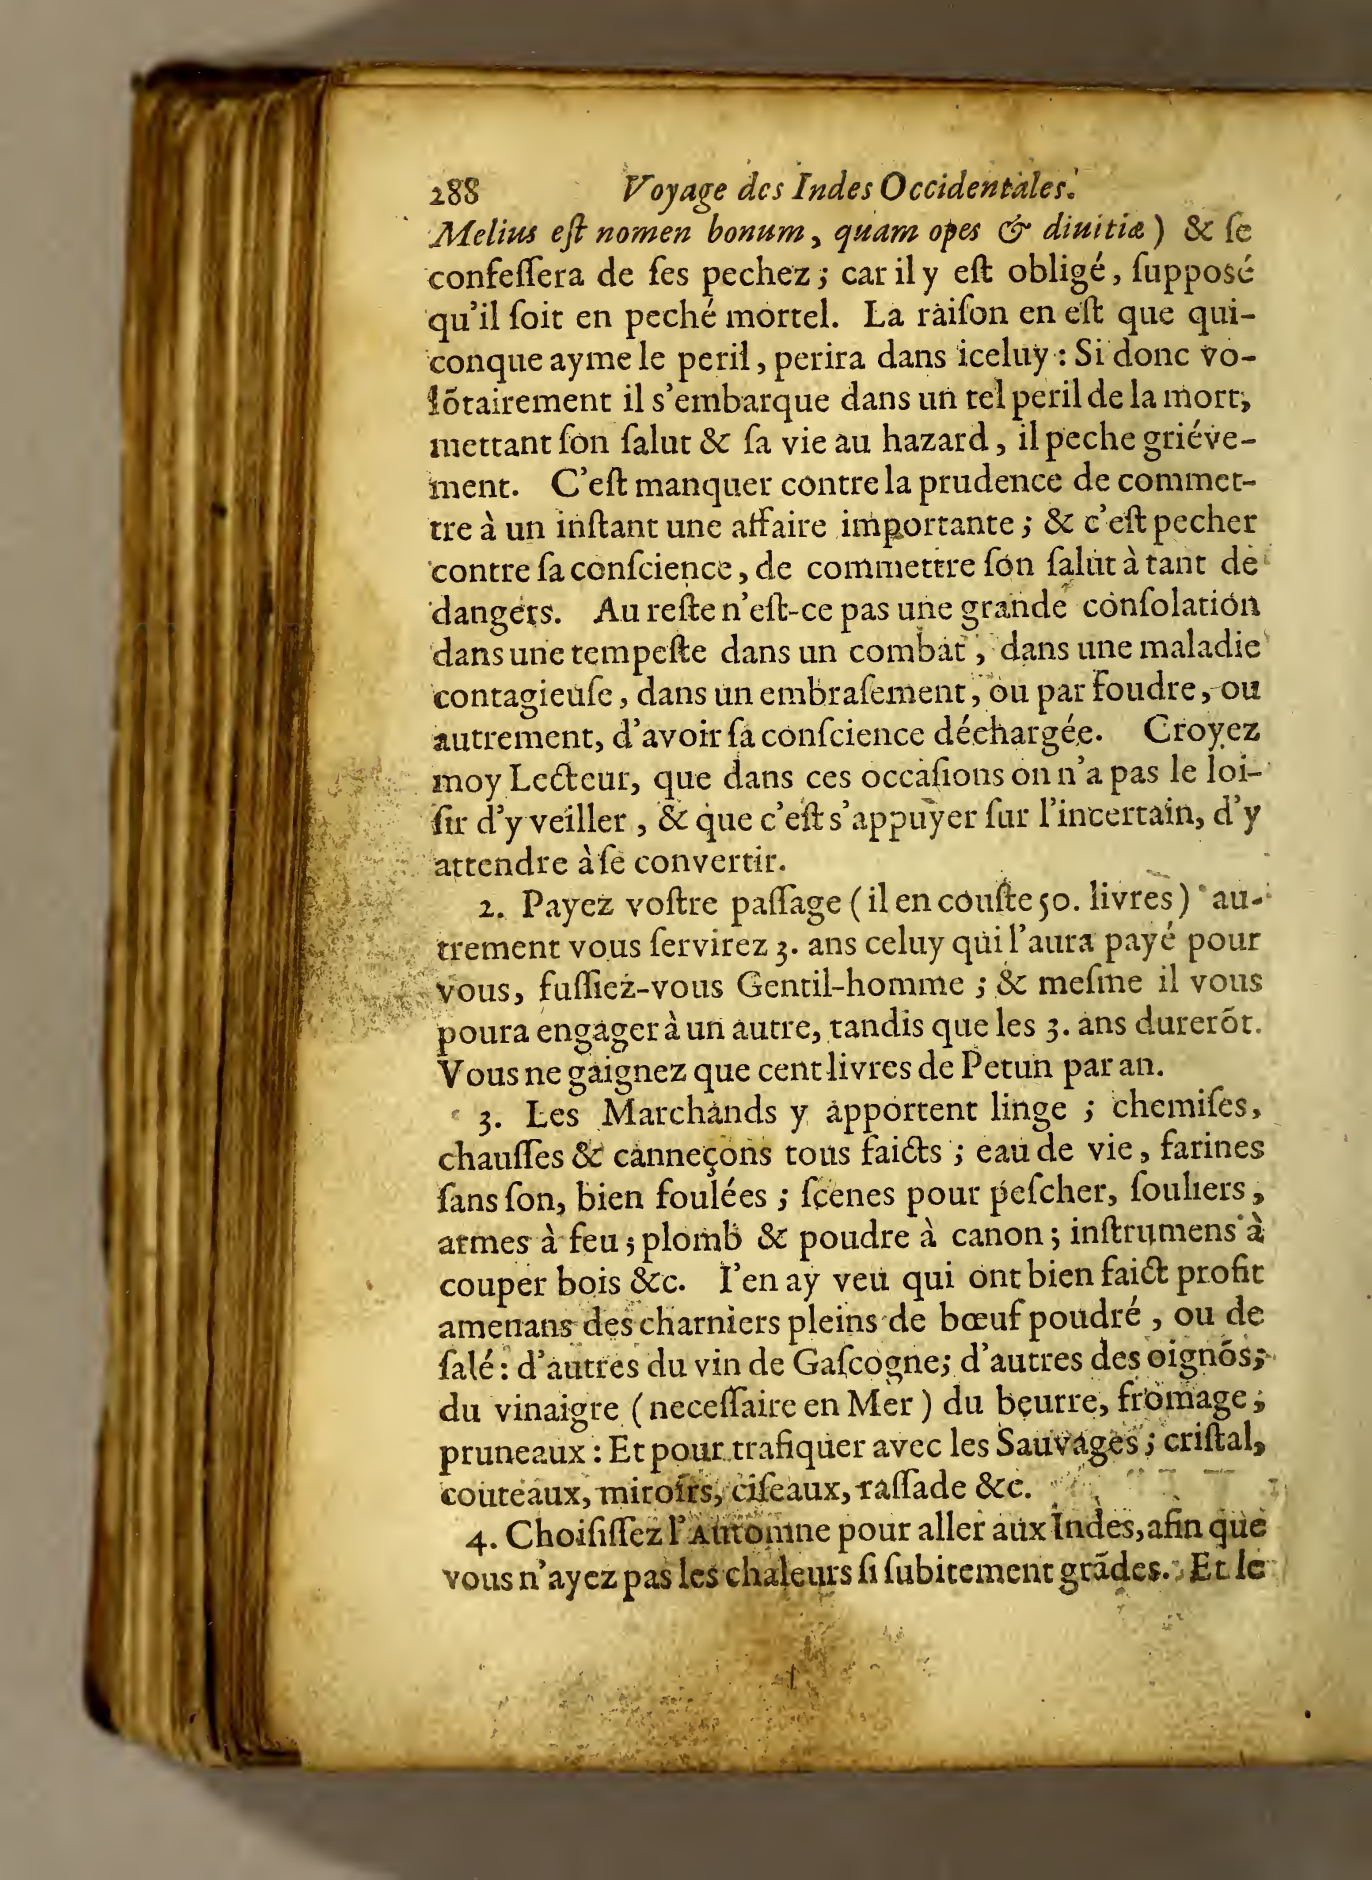 288 Voyage des Indes Occidentales.
Melius eſt nomen bonum, quam opes & diuitiæ) & ſe
confeſſera de ſes pechez; car il y eſt obligé, ſupposé
qu'il ſoit en peché mortel. La raiſon en eſt que qui-
conque ayme le peril, perira dans iceluy: Si donc vo-
lõtairement il s'embarque dans un tel peril de la mort,
mettant ſon ſalut & ſa vie au hazard, il peche griéve-
ment. C'eſt manquer contre la prudence de commet-
tre à un inſtant une affaire importante; & c'eſt pecher
contre ſa conſcience, de commettre ſon ſalut à tant de
dangers. Au reſte n'eſt-ce pas une grande conſolation
dans une tempeſte dans un combat, dans une maladie
contagieuſe, dans un embraſement, ou par foudre, ou
autrement, d'avoir ſa conſcience déchargée. Croyez
moy Lecteur, que dans ces occaſions on n'a pas le loi-
ſir d'y veiller, & que c'eſt s'appuyer ſur l'incertain, d'y
attendre à ſe convertir.
2. Payez voſtre paſſage (il en couſte 50. livres) au-
trement vous ſervirez 3. ans celuy qui l'aura payé pour
vous, fuſſiez-vous Gentil-homme; & meſme il vous
poura engager à un autre, tandis que les 3. ans durerõt.
Vous ne gaignez que cent livres de Petun par an.
3. Les Marchands y apportent linge; chemiſes,
chauſſes & canneçons tous faicts; eau de vie, farines
ſans ſon, bien foulées; ſçenes pour peſcher, ſouliers,
armes à feu; plomb & poudre à canon; inſtrumens à
couper bois &c. I'en ay veu qui ont bien faict profit
amenans des charniers pleins de bœuf poudré, ou de
ſalé: d'autres du vin de Gaſcogne; d'autres des oignõs;
du vinaigre (neceſſaire en Mer) du beurre, fromage;
pruneaux: Et pour trafiquer avec les Sauvages; criſtal,
couteaux, miroirs, ciſeaux, raſſade &c.
4. Choiſiſſez l'Automne pour aller aux Indes, afin que
vous n'ayez pas les chaleurs ſi ſubitement grãdes. Et le